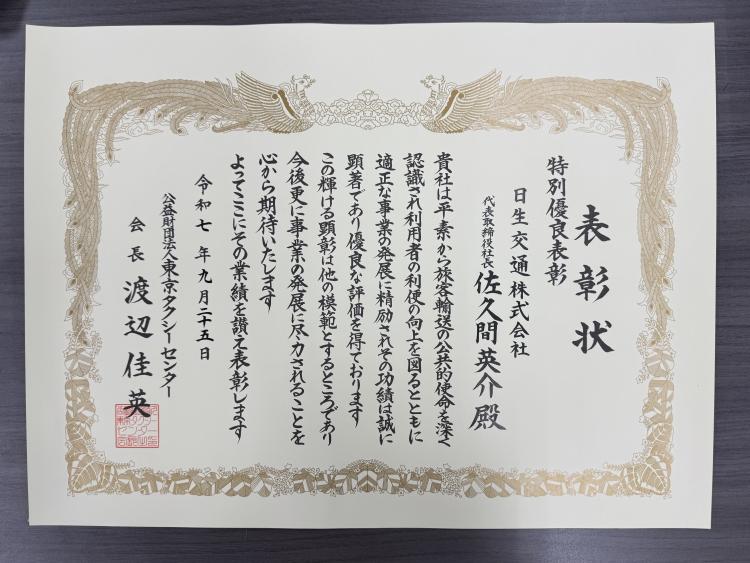 表彰状
特別優良表彰
日生交通株式会社
代表取締役社長 佐久間英介 殿
貴社は平素から旅客輸送の公共的使命を深く
認識され利用者の利便の向上を図るとともに
適正な事業の発展に精励されその功績は誠に
顕著であり優良な評価を得ております
この輝ける顕彰は他の模範とするところであり
今後更に事業の発展に尽力されることを
心から期待いたします
よってここにその業績を讃え表彰します
令和七年九月二十五日
公益財団法人東京タクシーセンター
会長 渡辺佳英